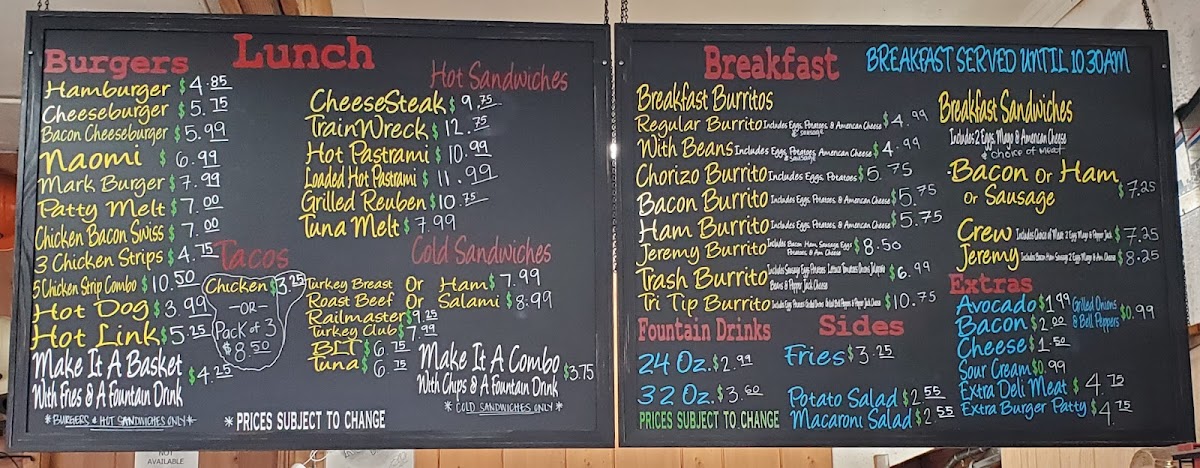 Lunch
Burgers
Hamburger $4.85
Cheeseburger $5.75
Bacon Cheeseburger $5.99
Naomi $6.99
Mark Burger $7.99
Patty Melt $7.00
Chicken Bacon Swiss $7.00
3 Chicken Strips $4.75
5 Chicken Strip Combo $10.50
Hot Dog $3.99
Hot Link $5.25
Make It A Basket
With Fries & A Fountain Drink $4.25
*BURGERS & HOT SANDWICHES ONLY*
Tacos
Chicken $3.25
-OR-
Pack of 3
$8.50
Hot Sandwiches
CheeseSteak $9.75
TrainWreck $12.75
Hot Pastrami $10.99
Loaded Hot Pastrami $11.99
Grilled Reuben $10.75
Tuna Melt $7.99
Cold Sandwiches
Turkey Breast Or Ham $7.99
Roast Beef Or Salami $8.99
Railmaster $9.25
Turkey Club $7.99
BLT $6.75
Tuna $6.75
Make It A Combo
With Chips & A Fountain Drink $3.75
*COLD SANDWICHES ONLY*
*PRICES SUBJECT TO CHANGE
Breakfast
BREAKFAST SERVED UNTIL 10 30AM
Breakfast Burritos
Regular Burrito Includes Eggs, Potatoes, & American Cheese $4.99
& Sausage
With Beans Includes Eggs, Potatoes, American Cheese $4.99
& Sausage
Chorizo Burrito Includes Eggs, Potatoes $5.75
Bacon Burrito Includes Eggs, Potatoes, & American Cheese $5.75
Ham Burrito Includes Eggs, Potatoes, & American Cheese $5.75
Jeremy Burrito Includes Bacon Ham, Sausage Eggs $8.50
Potatoes, & Am Cheese
Trash Burrito Includes Sausage Eggs Potatoes Lettuce Tomatoes Onions Jalapeño $6.99
Beans & Pepper Jack Cheese
Tri Tip Burrito Includes Eggs Potatoes Grilled Onions Bell Peppers & Pepper Jack Cheese $10.75
Breakfast Sandwiches
Includes 2 Eggs, Mayo & American Cheese
& choice of meat
Bacon Or Ham
Or Sausage $7.25
Crew Includes Choice of Meat 2 Eggs Mayo & Pepper Jack $7.25
Jeremy Includes Bacon Ham Sausage 2 Eggs Mayo & Am Cheese $8.25
Fountain Drinks
24 Oz. $2.99
32 Oz. $3.60
PRICES SUBJECT TO CHANGE
Sides
Fries $3.25
Potato Salad $2.55
Macaroni Salad $2.55
Extras
Avocado $1.99
Grilled Onions
& Bell Peppers $0.99
Bacon $2.00
Cheese $1.50
Sour Cream $0.99
Extra Deli Meat $4.75
Extra Burger Patty $4.75
NOT
AVAILABLE